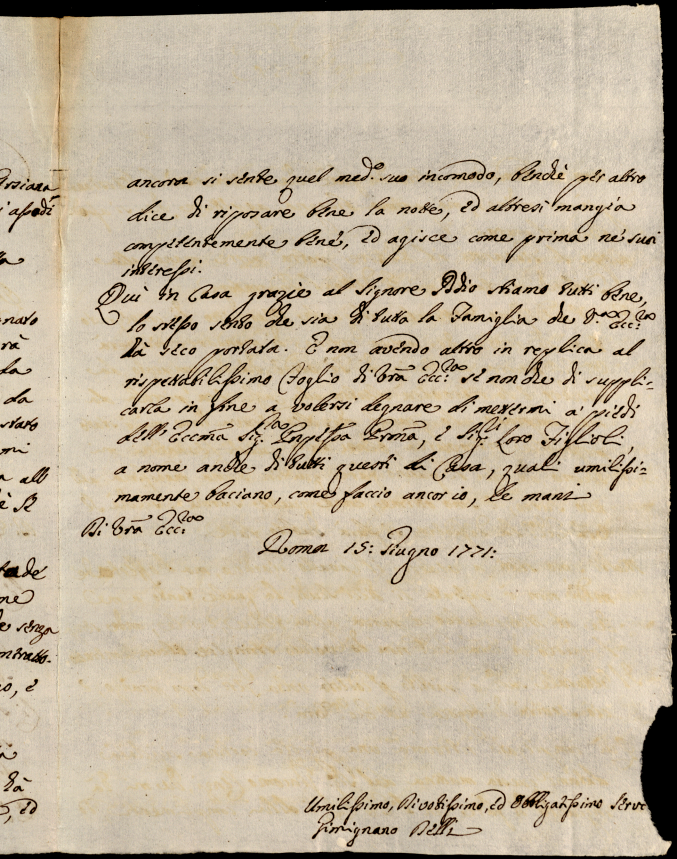 ancora si sente quel med.º suo incomodo, benchè per altro
dice di riposare bene la notte, ed altresì mangia
competentemente bene, ed agisce come prima ne' suoi
interessi.
Qui in Casa grazie al Signore Iddio stiamo tutti bene,
lo stesso sento che sia di tutta la Famiglia che V.ra Ecc.za
hà seco portata. E non avendo altro in replica al
rispettabilissimo Foglio di Vrã Ecc.za se non che di suppli-
carla in fine a volersi degnare di mettermi a' piedi
dell' Eccmã Sig.ra Pnpessa Prmã, e Sig.ri Loro Figlioli,
a nome anche di tutti questi di Casa, quali umilissi-
mamente baciano, come faccio ancor io, le mani
Di Vrã Ecc.za
Roma 15: Giugno 1771:
Umilissimo, Divotissimo, ed Obbligatissimo Serve
Gimignano Belli
ersiana
gnato
rà
da
da
stato
mi
all
è
ne
e senza
ontratto.
o, è
hà
, ed